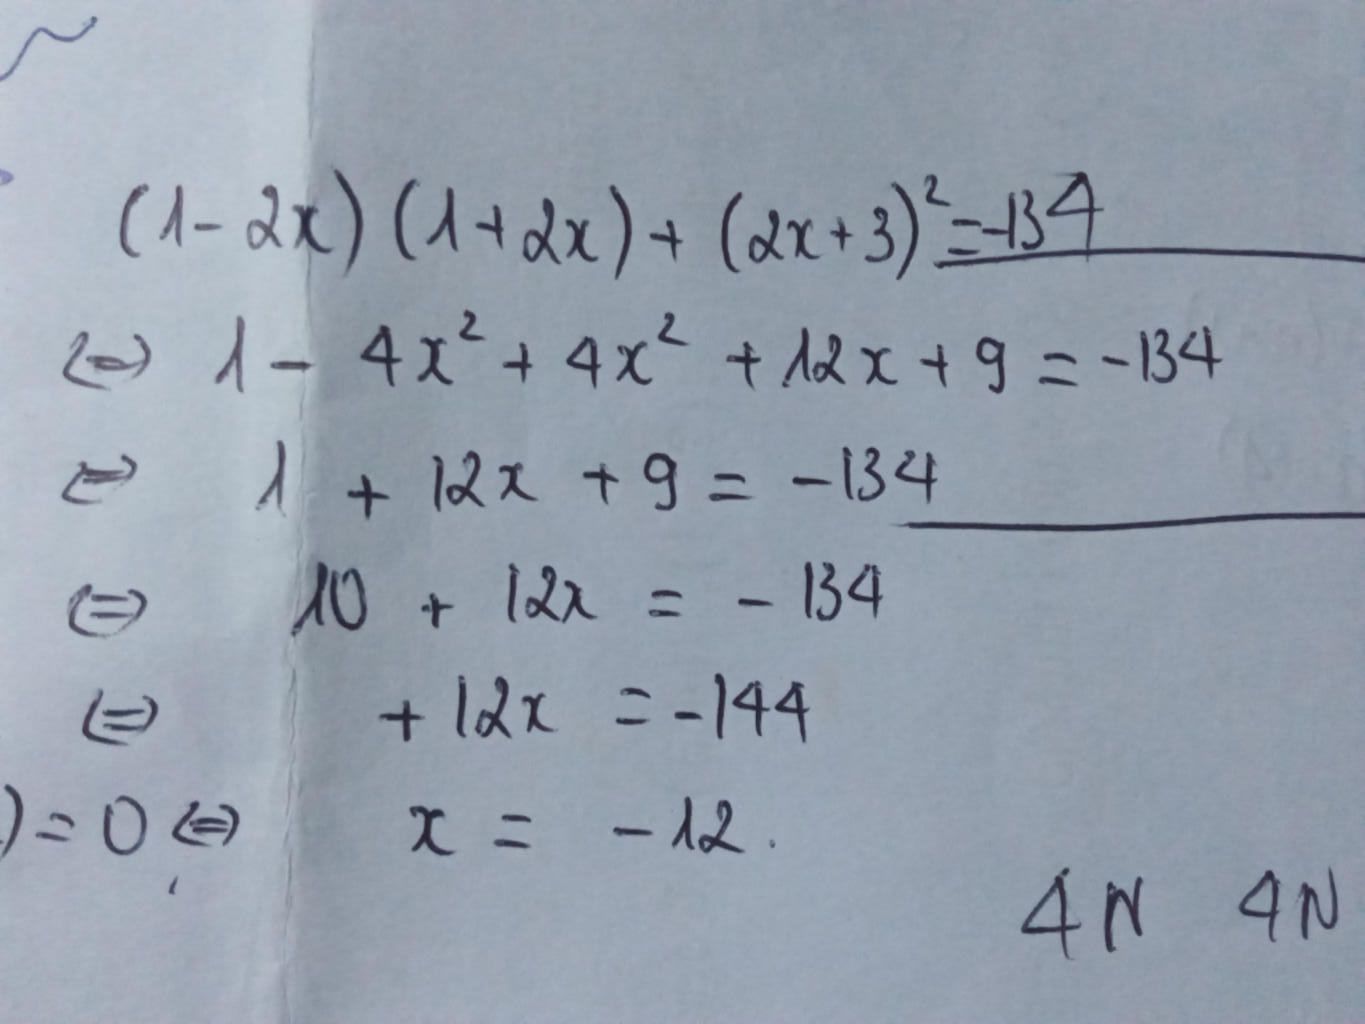 (1-2x)(1+2x)+(2x+3)²=-134
⇔ 1-4x²+4x²+12x+9=-134
⇔ 1+12x+9=-134
⇔ 10+12x=-134
⇔ +12x=-144
)=0 ⇔ x=-12.
4N 4N